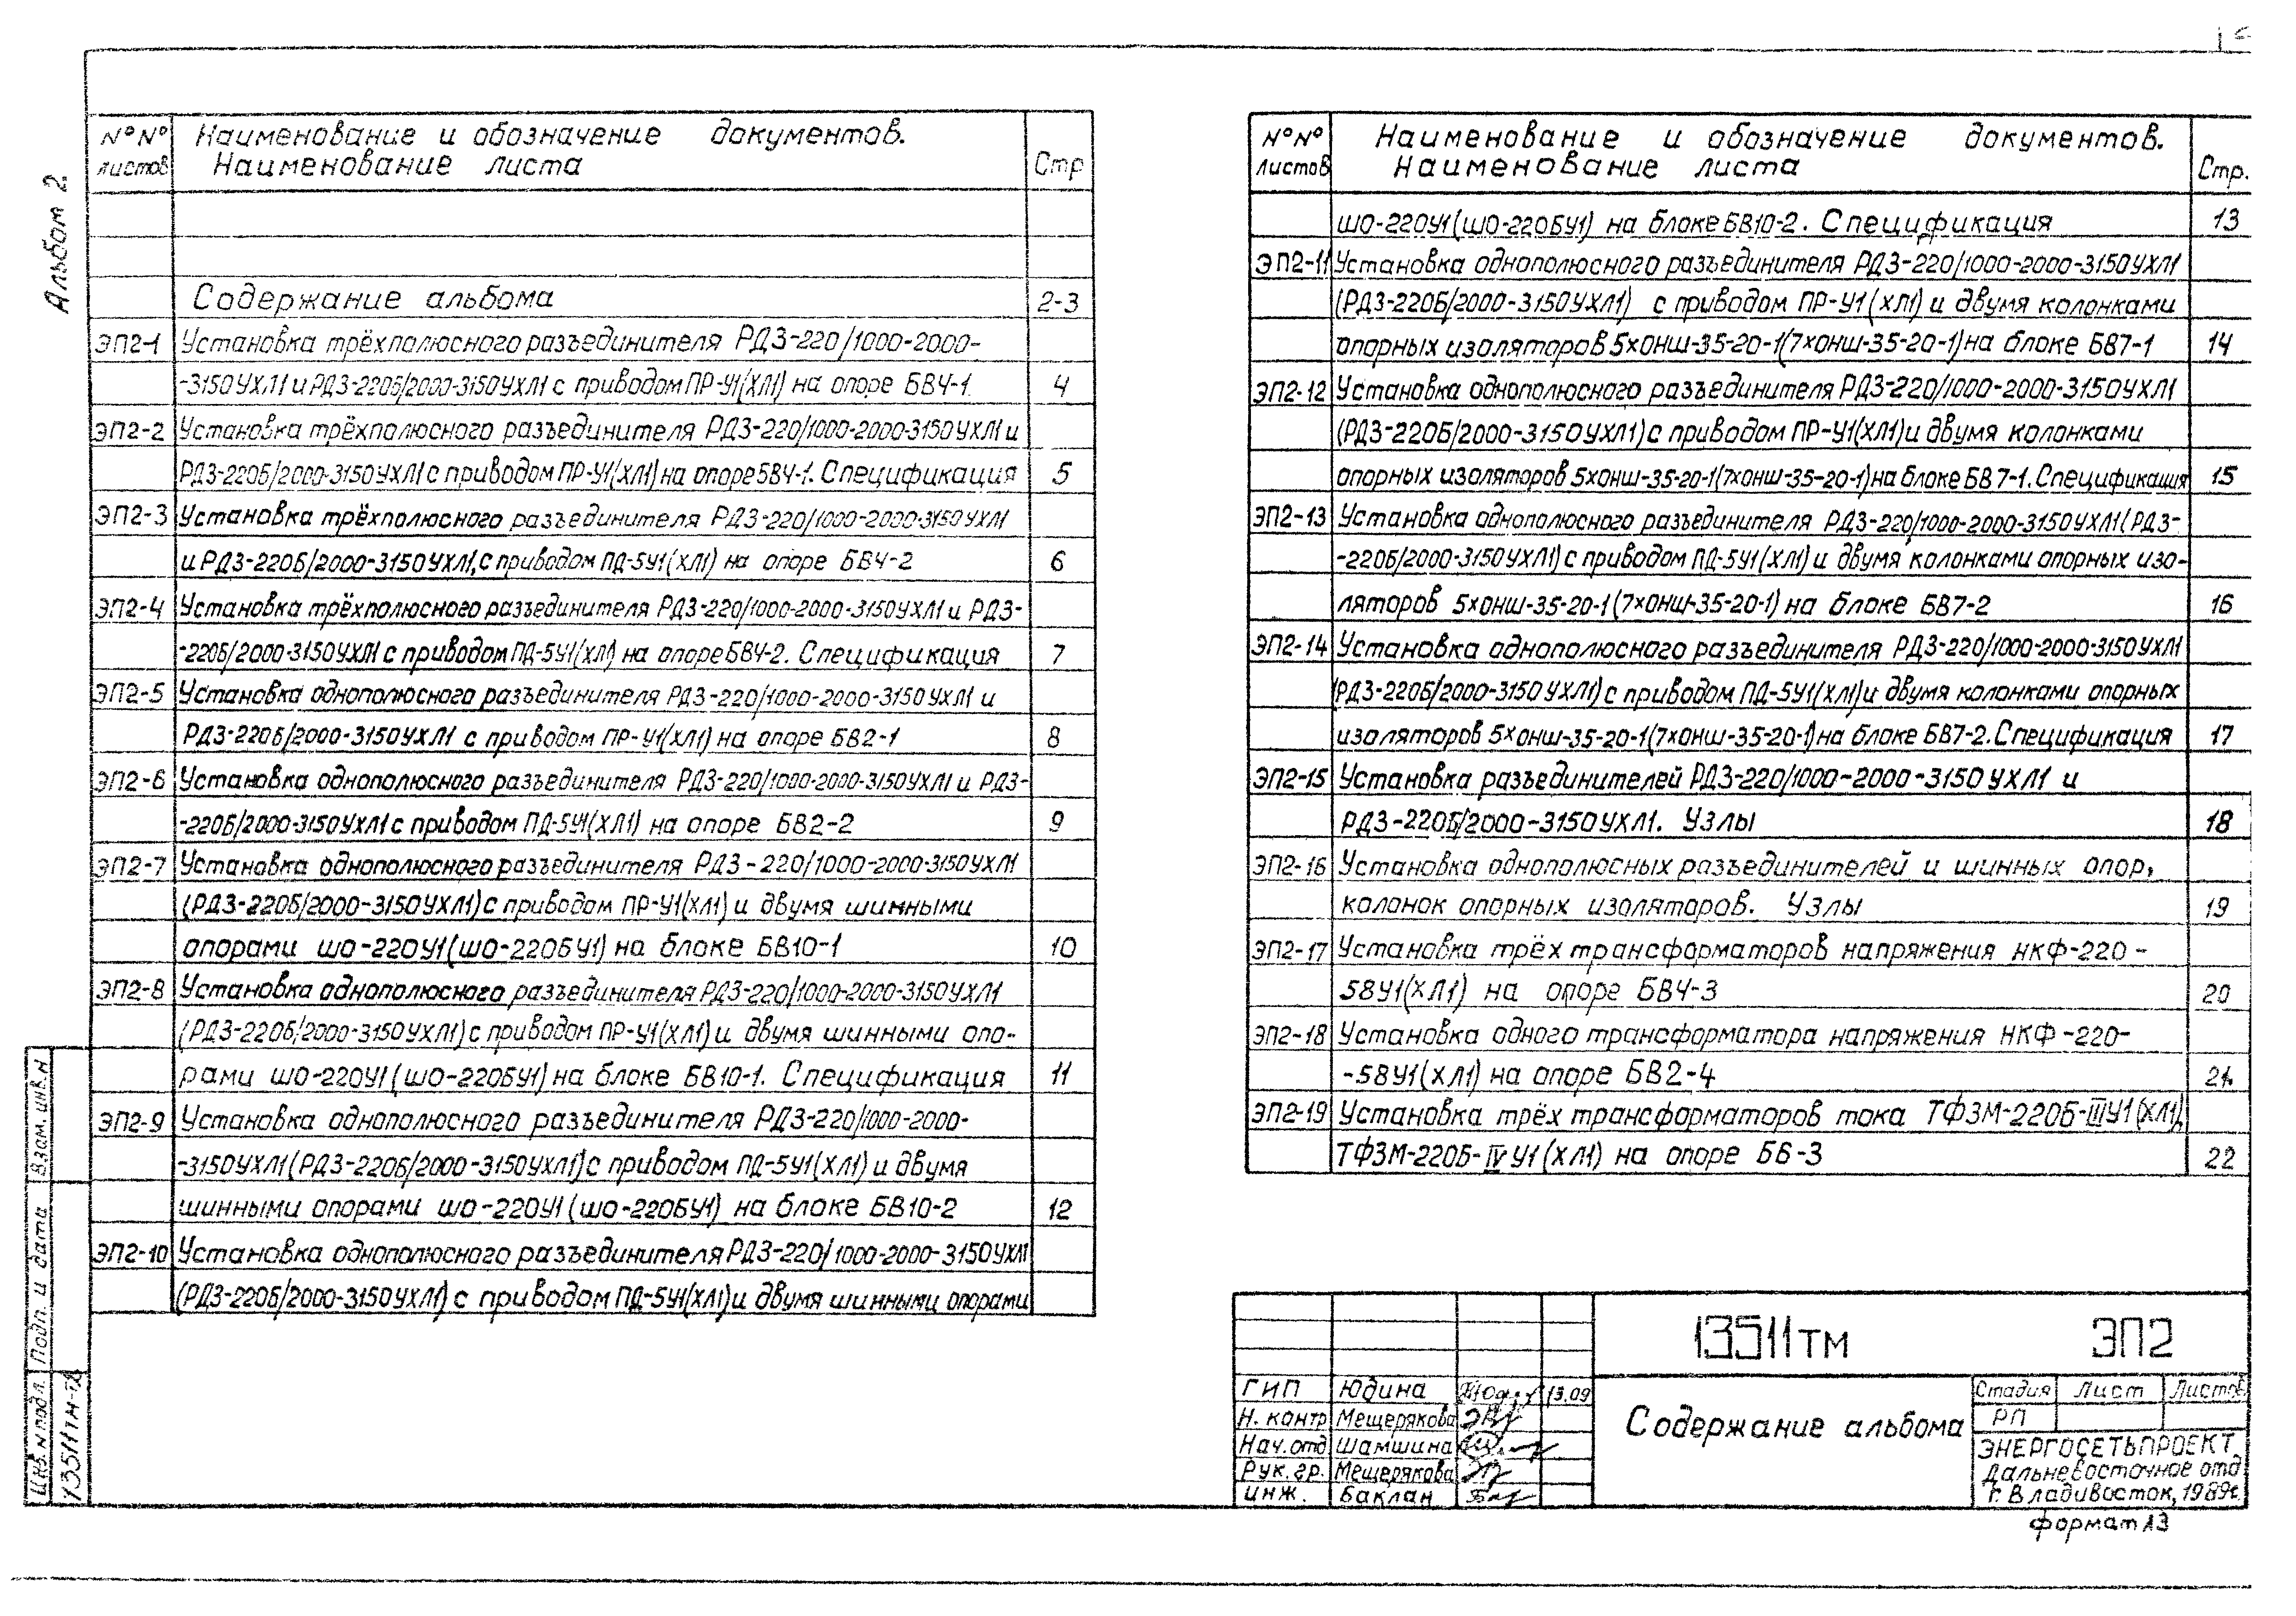 Альбом 2.
№№ листов
Наименование и обозначение документов.
Наименование листа
Стр
Содержание альбома 2-3
ЭП2-1 Установка трёхполюсного разъединителя РДЗ-220/1000-2000-
-3150УХЛ1 и РДЗ-220Б/2000-3150УХЛ1 с приводом ПР-У1(ХЛ1) на опоре БВ4-1. 4
ЭП2-2 Установка трёхполюсного разъединителя РДЗ-220/1000-2000-3150УХЛ1 и
РДЗ-220Б/2000-3150УХЛ1 с приводом ПР-У1(ХЛ1) на опоре БВ4-1. Спецификация 5
ЭП2-3 Установка трёхполюсного разъединителя РДЗ-220/1000-2000-3150УХЛ1
и РДЗ-220Б/2000-3150УХЛ1, с приводом ПД-5У1(ХЛ1) на опоре БВ4-2 6
ЭП2-4 Установка трёхполюсного разъединителя РДЗ-220/1000-2000-3150УХЛ1 и РДЗ-
-220Б/2000-3150УХЛ1 с приводом ПД-5У1(ХЛ1) на опоре БВ4-2. Спецификация 7
ЭП2-5 Установка однополюсного разъединителя РДЗ-220/1000-2000-3150УХЛ1 и
РДЗ-220Б/2000-3150УХЛ1 с приводом ПР-У1(ХЛ1) на опоре БВ2-1 8
ЭП2-6 Установка однополюсного разъединителя РДЗ-220/1000-2000-3150УХЛ1 и РДЗ-
-220Б/2000-3150УХЛ1 с приводом ПД-5У1(ХЛ1) на опоре БВ2-2 9
ЭП2-7 Установка однополюсного разъединителя РДЗ-220/1000-2000-3150УХЛ1
(РДЗ-220Б/2000-3150УХЛ1) с приводом ПР-У1(ХЛ1) и двумя шинными
опорами ШО-220У1(ШО-220БУ1) на блоке БВ10-1 10
ЭП2-8 Установка однополюсного разъединителя РДЗ-220/1000-2000-3150УХЛ1
(РДЗ-220Б/2000-3150УХЛ1) с приводом ПР-У1(ХЛ1) и двумя шинными опо-
рами ШО-220У1(ШО-220БУ1) на блоке БВ10-1. Спецификация 11
ЭП2-9 Установка однополюсного разъединителя РДЗ-220/1000-2000-
-3150УХЛ1(РДЗ-220Б/2000-3150УХЛ1) с приводом ПД-5У1(ХЛ1) и двумя
шинными опорами ШО-220У1(ШО-220БУ1) на блоке БВ10-2 12
ЭП2-10 Установка однополюсного разъединителя РДЗ-220/1000-2000-3150УХЛ1
(РДЗ-220Б/2000-3150УХЛ1) с приводом ПД-5У1(ХЛ1) и двумя шинными опорами
№№ листов
Наименование и обозначение документов.
Наименование листа
Стр.
ШО-220У1(ШО-220БУ1) на блоке БВ10-2. Спецификация 13
ЭП2-11 Установка однополюсного разъединителя РДЗ-220/1000-2000-3150УХЛ1
(РДЗ-220Б/2000-3150УХЛ1) с приводом ПР-У1(ХЛ1) и двумя колонками
опорных изоляторов 5хОНШ-35-20-1(7хОНШ-35-20-1) на блоке БВ7-1 14
ЭП2-12 Установка однополюсного разъединителя РДЗ-220/1000-2000-3150УХЛ1
(РДЗ-220Б/2000-3150УХЛ1) с приводом ПР-У1(ХЛ1) и двумя колонками
опорных изоляторов 5хОНШ-35-20-1(7хОНШ-35-20-1) на блоке БВ7-1. Спецификация 15
ЭП2-13 Установка однополюсного разъединителя РДЗ-220/1000-2000-3150УХЛ1(РДЗ-
-220Б/2000-3150УХЛ1) с приводом ПД-5У1(ХЛ1) и двумя колонками опорных изо-
ляторов 5хОНШ-35-20-1(7хОНШ-35-20-1) на блоке БВ7-2 16
ЭП2-14 Установка однополюсного разъединителя РДЗ-220/1000-2000-3150УХЛ1
(РДЗ-220Б/2000-3150УХЛ1) с приводом ПД-5У1(ХЛ1) и двумя колонками опорных
изоляторов 5хОНШ-35-20-1(7хОНШ-35-20-1) на блоке БВ7-2. Спецификация 17
ЭП2-15 Установка разъединителей РДЗ-220/1000-2000-3150УХЛ1 и
РДЗ-220Б/2000-3150УХЛ1. Узлы 18
ЭП2-16 Установка однополюсных разъединителей и шинных опор,
колонок опорных изоляторов. Узлы 19
ЭП2-17 Установка трёх трансформаторов напряжения НКФ-220-
58У1(ХЛ1) на опоре БВ4-3 20
ЭП2-18 Установка одного трансформатора напряжения НКФ-220-
-58У1(ХЛ1) на опоре БВ2-4 21
ЭП2-19 Установка трёх трансформаторов тока ТФЗМ-220Б-IIIУ1(ХЛ1),
ТФЗМ-220Б-IVУ1(ХЛ1) на опоре Б6-3 22
Взам. инв. N
Подп. и дата
Инв. N подл.
13511тм-т2
13511тм ЭП2
ГИП Юдина 13.09
Н. контр Мещерякова
Нач. отд Шамшина
Рук. гр. Мещерякова
инж. Баклан
Содержание альбома
Стадия Лист Листов
РП
ЭНЕРГОСЕТЬПРОЕКТ
Дальневосточное отд
г. Владивосток, 1989г.
формат А3